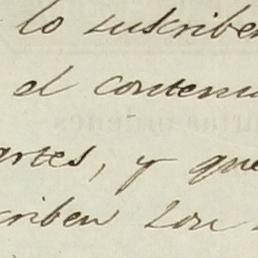 lo suscriben
el conteni
artes, y que
criben son